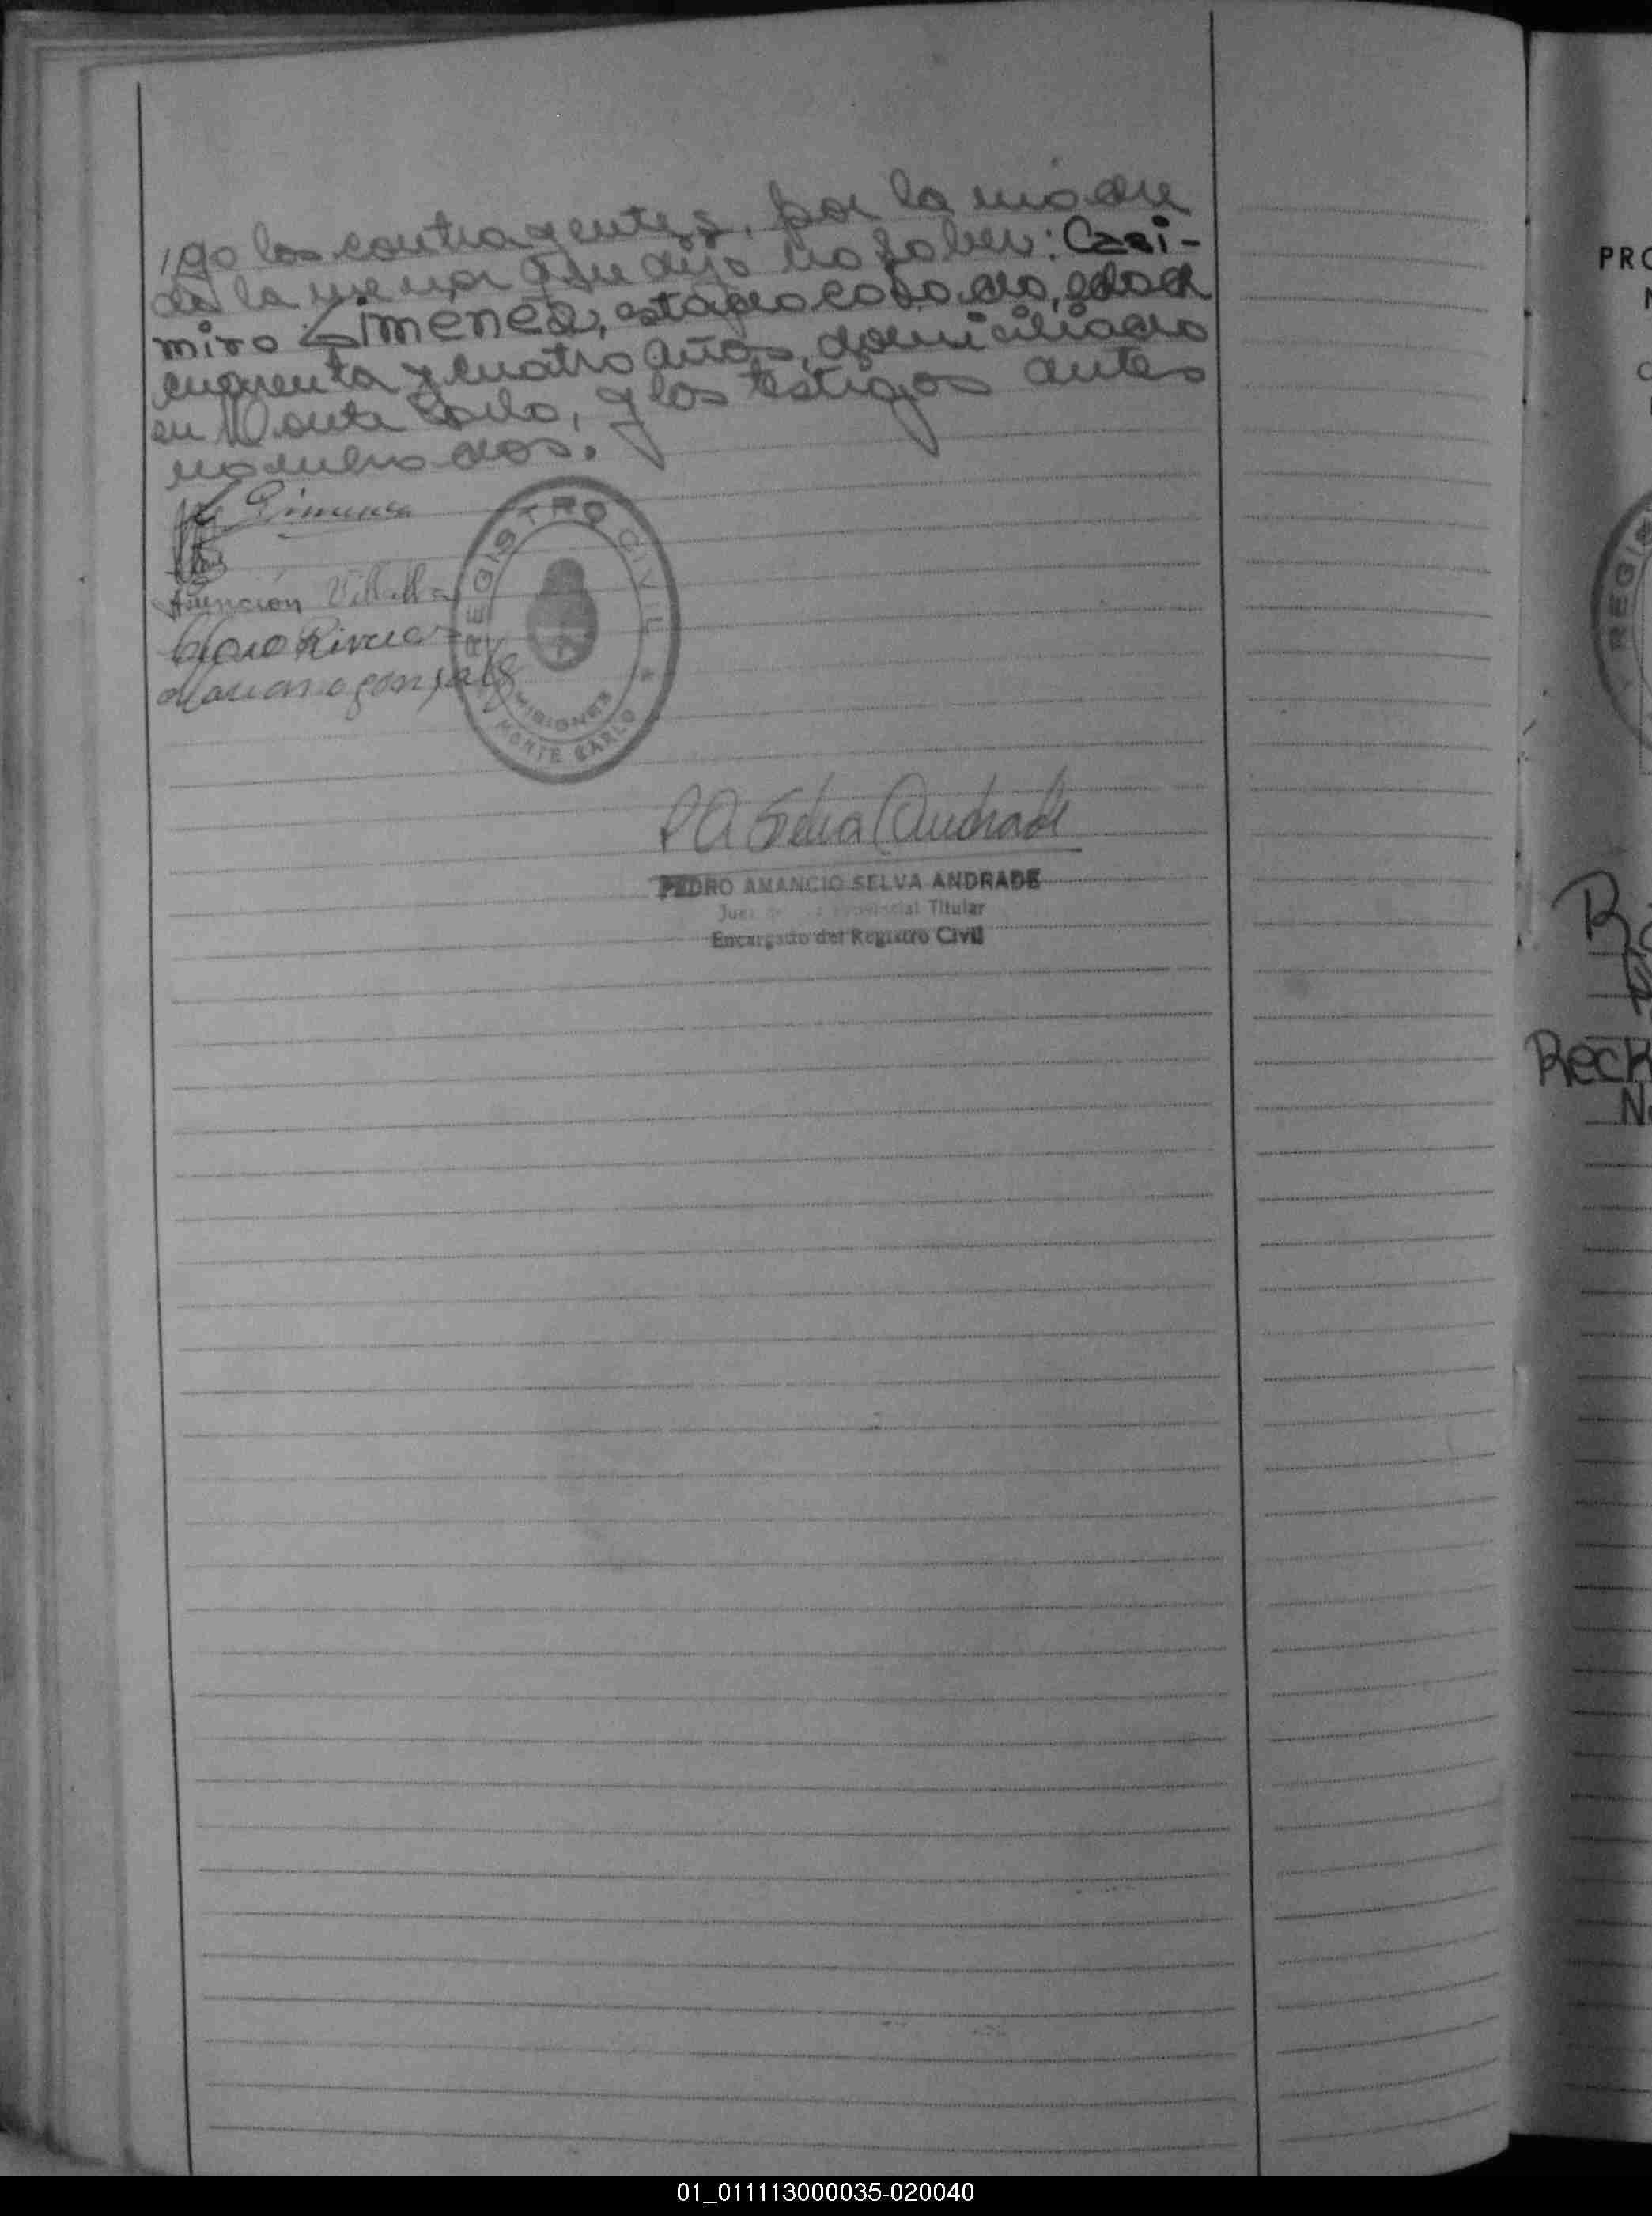 go los contrayentes, por la madre
de la menor que dijo no saber: Casi-
miro Gimenez, estado casado, edad
cuarenta y cuatro años, domiciliado
en Monte Carlo, y los testigos antes
nombrados.
Gimenez
Asunción Villalba
Rivero
Mariano
REGISTRO CIVIL
MISIONES
MONTE CARLO
P A Selva Andrade
PEDRO AMANCIO SELVA ANDRADE
Juez de Provincial Titular
Encargado del Registro Civil
PRO
REGIS
Rech
01_011113000035-020040